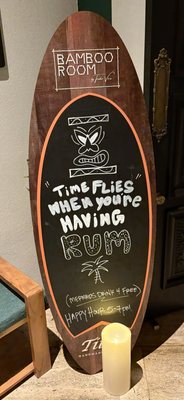 BAMBOO
ROOM
"TIME FLIES
WHEN YOU'RE
HAVING
RUM"
(MERMAIDS DRINK 4 FREE)
HAPPY HOUR 5-7PM